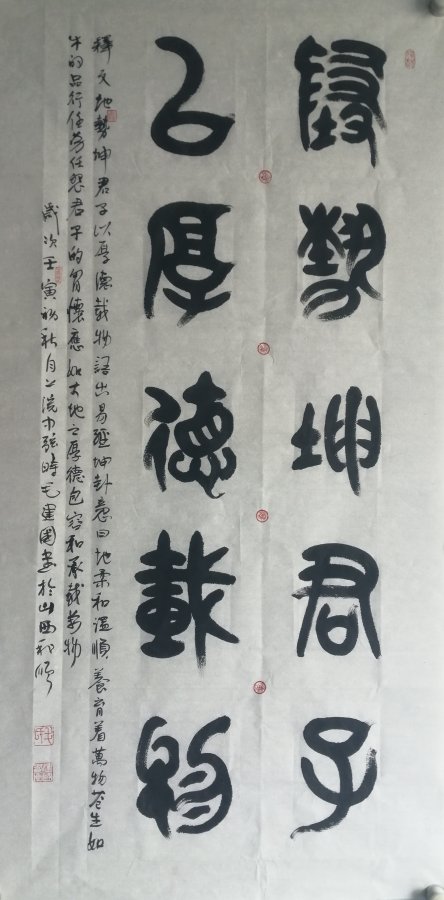 墬勢坤君子
㠯厚德載物
釋文地勢坤君子以厚德載物語出易經坤卦意曰地柔和溫順養育着萬物苍生如
牛的品行任劳任怨君子的胃懷應如大地之厚德包容和承載萬物
歲次壬寅初秋月上浣 時 書於山西和順